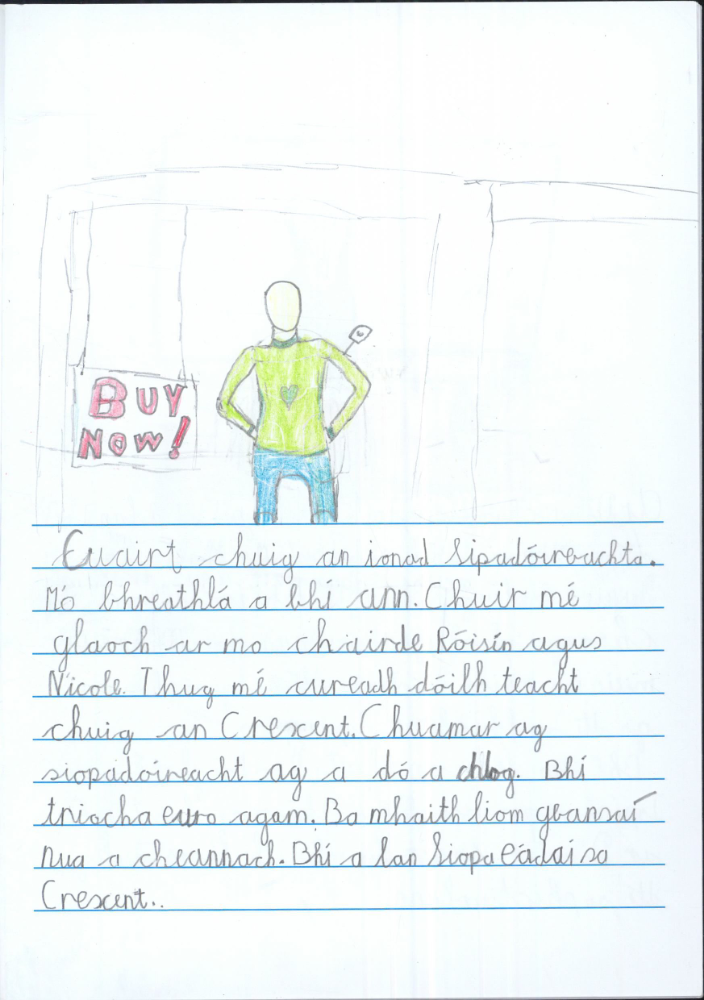 BUY
NOW!
Cuairt chuig an ionad Sipadóireachta.
Mó bhreathlá a bhí ann. Chuir mé
glaoch ar mo chairde Róisín agus
Nicole. Thug mé cureadh dóibh teacht
chuig an Crescent. Chuamar ag
siopadóireacht ag a dó a chlog. Bhí
tríocha euro agam. Ba mhaith liom geansaí
nua a cheannach. Bhí a lan Siopa éadaí sa
Crescent..